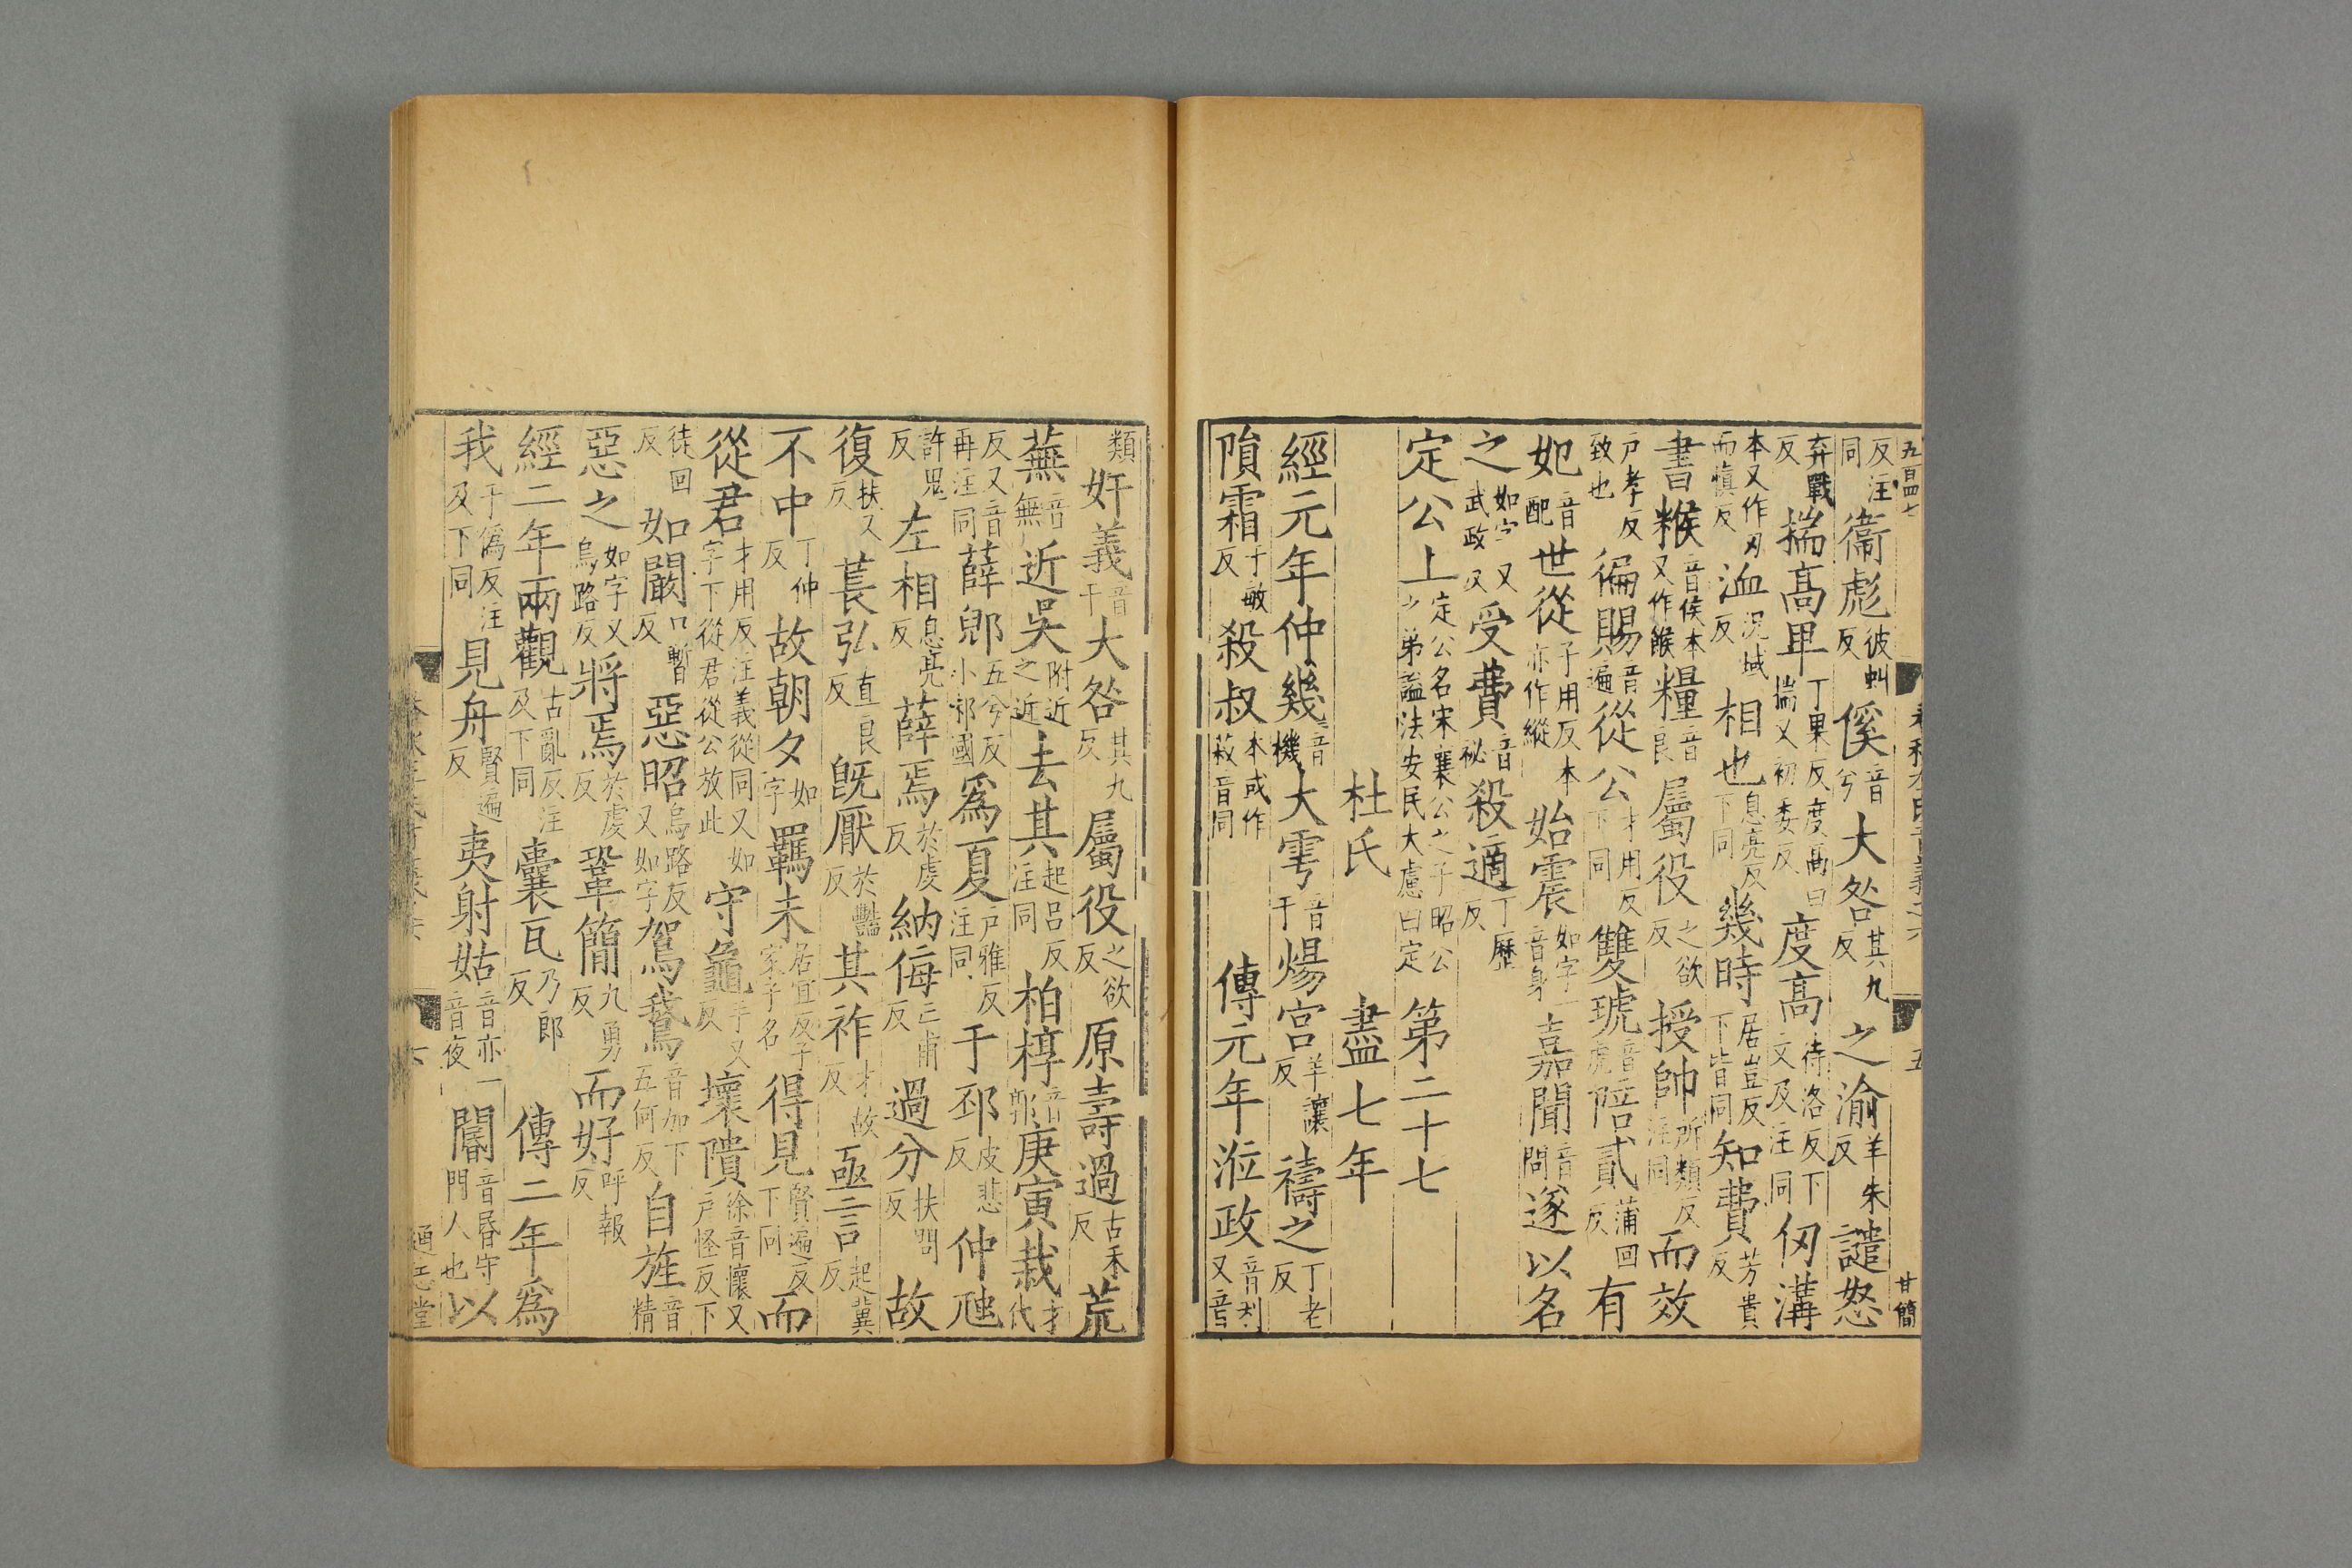 反注同衞彪彼虯反傒音兮大咎其九反之渝羊朱反譴怒
弃戰反揣高卑丁果反度高曰揣又初委反度高待洛反下文及注同仞溝
本又作刃而慎反洫況域反相也息亮反下同幾時居豈反下皆同知費芳貴反
書餱音侯本又作餱糧音良屬役之欲反授帥所類反注同而效
户孝反致也徧賜音遍從公才用反下同雙琥音虎陪貳蒲回反有
妃音配世從子用反本亦作縱始震如字一音身嘉聞音問遂以名
之如字又武政反受費音祕殺適丁歷反
定公上定公名宋襄公之子昭公之弟謚法安民大慮曰定第二十七
杜氏盡七年
經元年仲幾音機大雩音于煬宮羊讓反禱之丁老反
隕霜于敏反殺叔本或作菽音同傳元年涖政音利又音
類奸義音干大咎其九反屬役之欲反原壽過古禾反荒
蕪音無近吳附近之近去其起呂反注同柏椁音郭庚寅栽才代
反又音再注同薛郳五兮反小邾國爲夏户雅反注同于邳皮悲反仲虺
許鬼反左相息亮反薛焉於虔反納侮亡甫反過分扶問反故
復扶又反萇弘直良反旣厭於豔反其祚才故反亟言起冀反
不中丁仲反故朝夕如字羈未居宜反子家子名得見賢遍反下同而
從君才用反注義從同又如字下從君從公放此守龜手又反壞隤徐音懷又户怪反下
徒回反如闞口暫反惡昭烏路反又如字駕鵞音加下五何反自旌音精
惡之如字又烏路反將焉於虔反鞏簡九勇反而好呼報反
經二年兩觀古亂反注及下同囊瓦乃郎反傳二年爲
我于僞反注及下同見舟賢遍反夷射姑音亦一音夜閽音昏守門人也以
通志堂